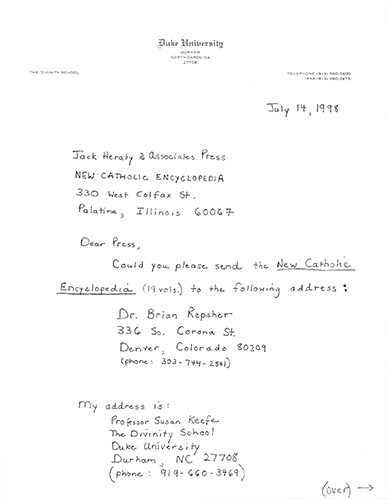 Duke University
DURHAM
NORTH CAROLINA
27708
THE DIVINITY SCHOOL
TELEPHONE (919) 660-3400
FAX (919) 660-3473
July 14, 1998
Jack Heraty & Associates Press
NEW CATHOLIC ENCYCLOPEDIA
330 West Colfax St.
Palatine, Illinois 60067
Dear Press,
Could you please send the New Catholic
Encyclopedia (19 vols.) to the following address:
Dr. Brian Repsher
336 So. Corona St.
Denver, Colorado 80209
(phone: 303-744-2341)
My address is:
Professor Susan Keefe
The Divinity School
Duke University
Durham, NC 27708
(phone: 919-660-3469)
(over) →